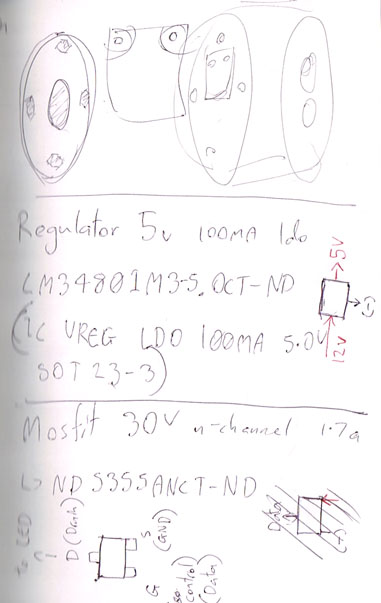 Regulator 5v 100MA ldo
LM3480IM3-5.0CT-ND
(IC VREG LDO 100MA 5.0V
SOT 23-3)
→5V
12V
Mosfit 30V n-channel 1.7a
↳ NDS355ANCT-ND
to LED
D (Drain)
S (GND)
G
control)
(Data)
Data
(+)